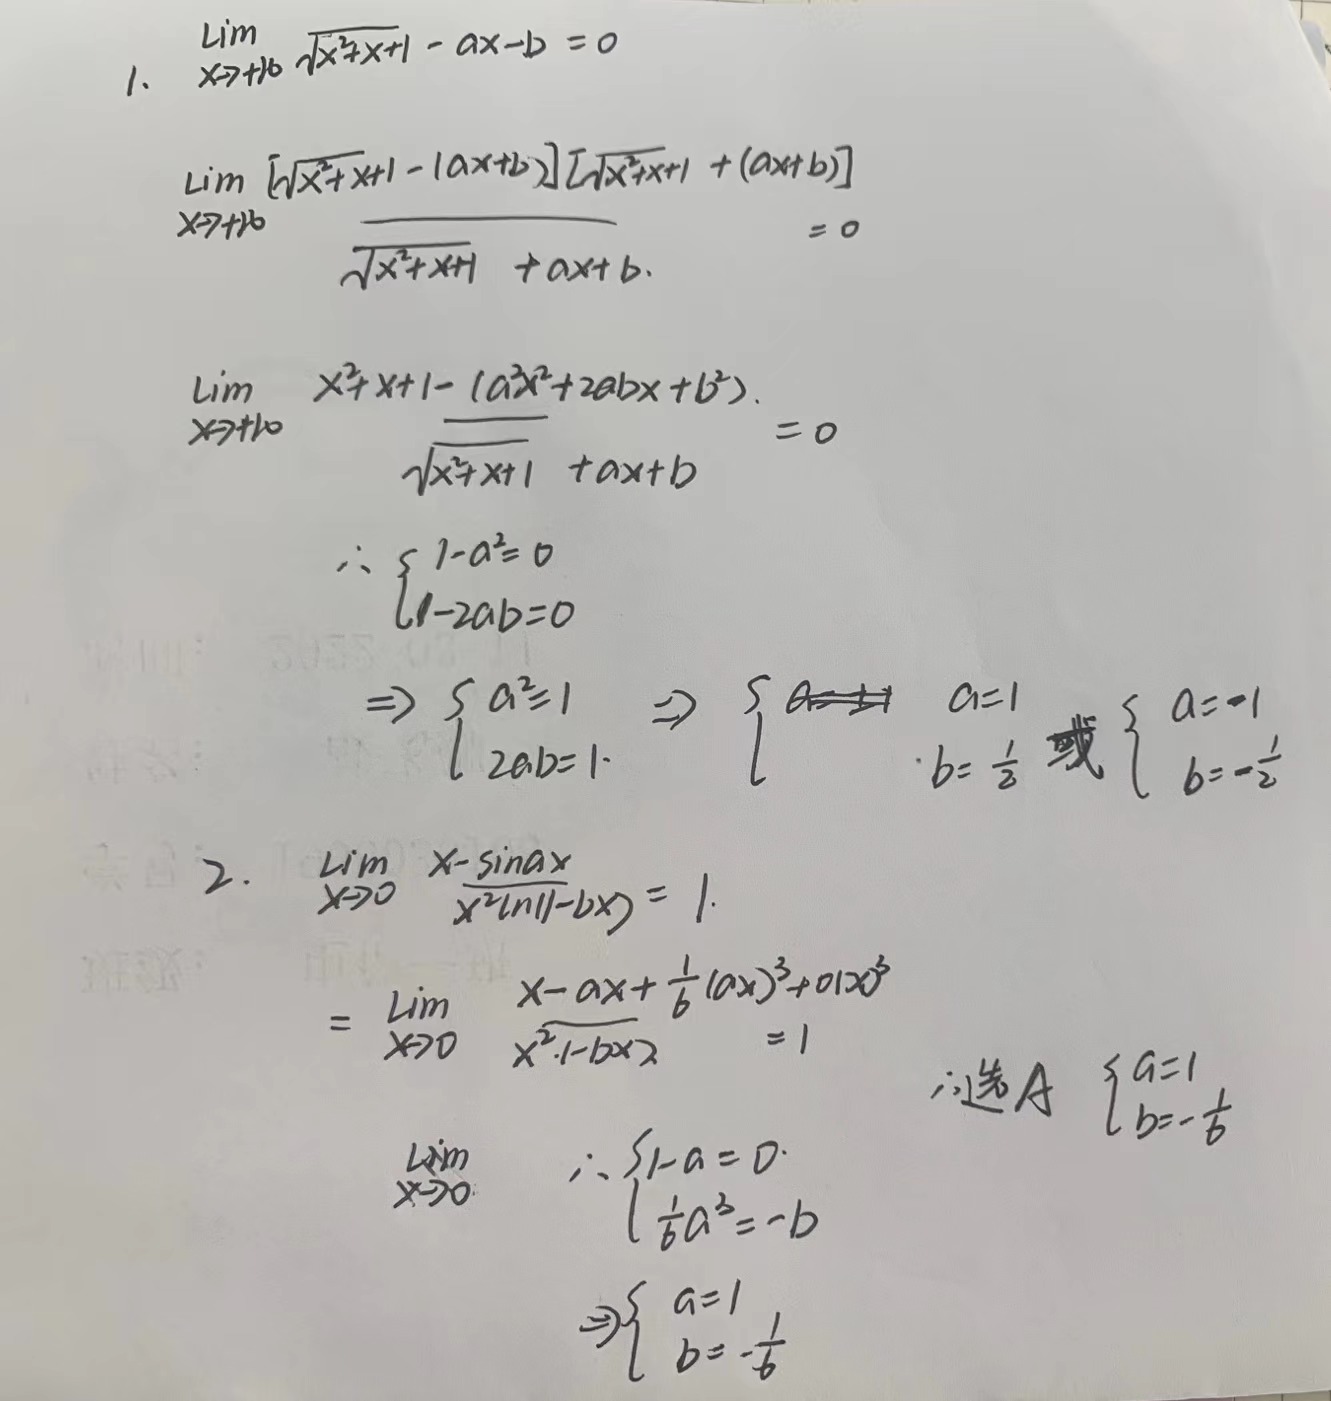 1. Lim x→+∞ √(x²+x+1) - ax-b = 0
Lim x→+∞ [√(x²+x+1) - (ax+b)][√(x²+x+1) + (ax+b)] / (√(x²+x+1) + ax+b.) = 0
Lim x→+∞ x²+x+1-(a²x²+2abx+b²). / (√(x²+x+1) + ax+b) = 0
∴ { 1-a²=0
1-2ab=0
⇒ { a²=1 ⇒ { a=1 或 { a=-1
2ab=1. b=1/2 b=-1/2
2. Lim x→0 (x-sinax) / (x²ln(1-bx)) = 1.
= Lim x→0 (x-ax+1/6(ax)³+o(x)³) / (x²·(-bx)) = 1
∴选A { a=1
b=-1/6
Lim x→0 ∴ { 1-a=0.
1/6a³=-b
⇒ { a=1
b=-1/6